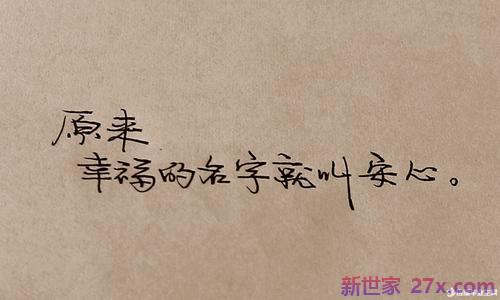 原来
幸福的名字就叫安心。
新世家 27x.com